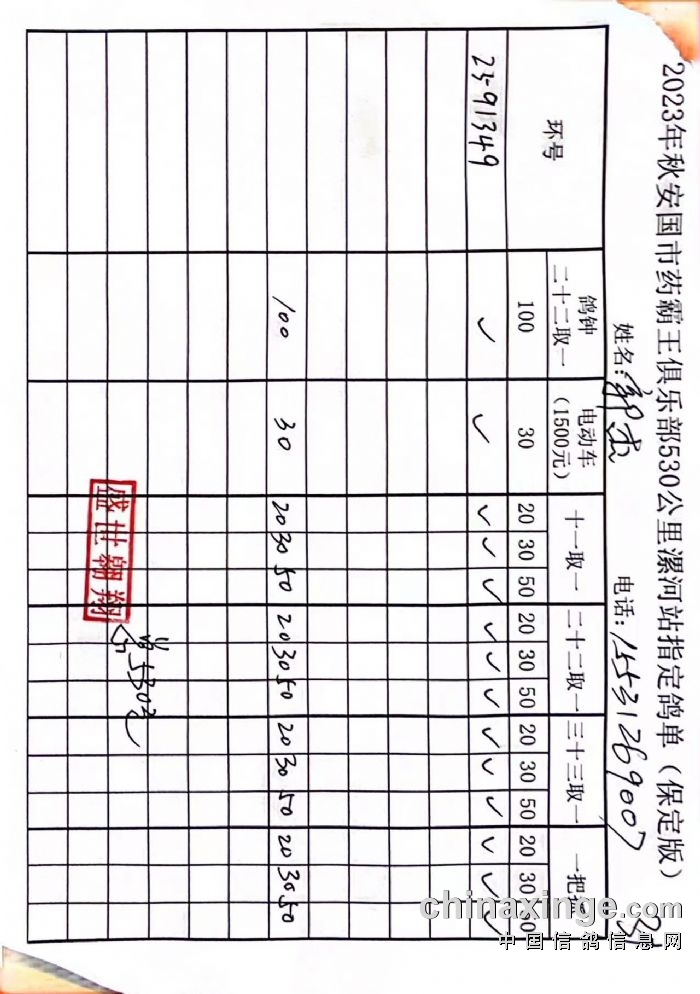 2023年秋安国市药霸王俱乐部530公里漯河站指定鸽单（保定版）
姓名: 电话: 15531269007
环号 鸽钟 二十二取一 电动车 (1500元) 十一取一 二十二取一 三十三取一 一把抓
100 30 20 30 50 20 30 50 20 30 50 20 30 50
23-91349 ✓ ✓ ✓ ✓ ✓ ✓ ✓ ✓ ✓ ✓ ✓ ✓ ✓ ✓
100 30 20 30 50 20 30 50 20 30 50 20 30 50
盛世翱翔
530元
chinaxinge.com
中国信鸽信息网